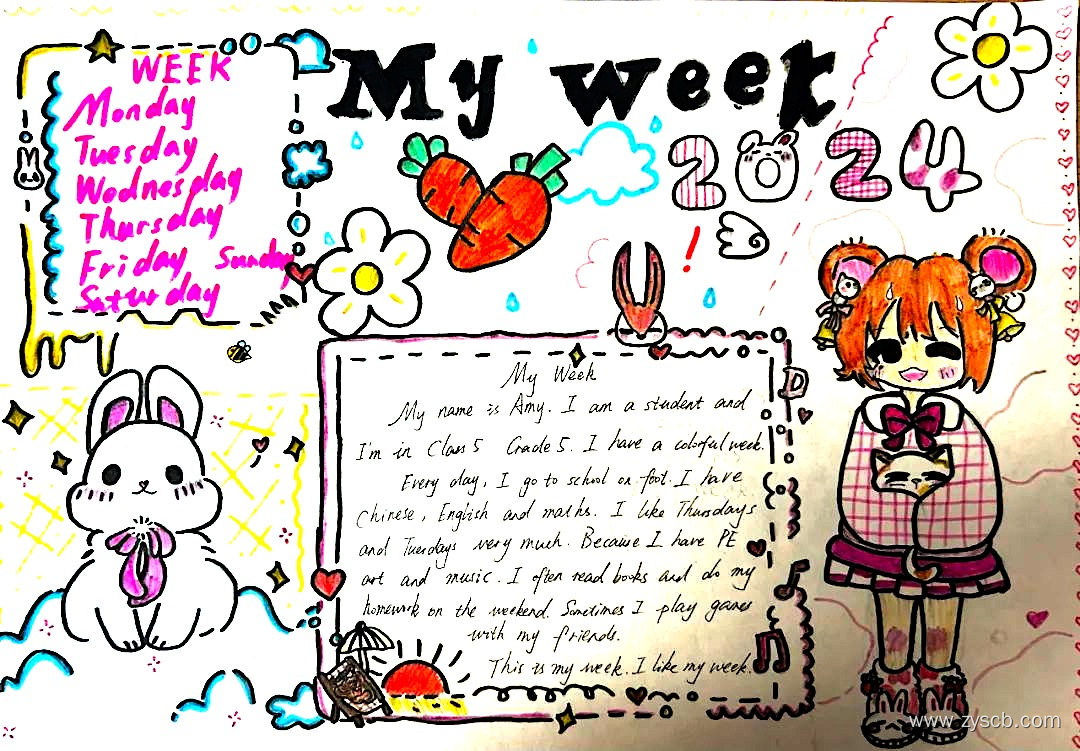 My week
2024
!
WEEK
Monday
Tuesday
Wednesday
Thursday
Friday Sunday
Saturday
My Week
My name is Amy. I am a student and
I'm in Class 5 Grade 5. I have a colorful week.
Every day, I go to school on foot. I have
Chinese, English and maths. I like Thursdays
and Tuesdays very much. Because I have PE
art and music. I often read books and do my
homework on the weekend. Sometimes I play games
with my friends.
This is my week. I like my week.
www.zyscb.com